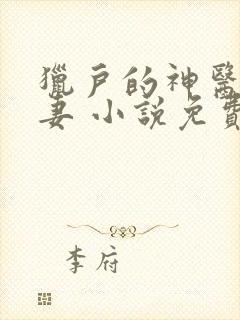 獵戶的神醫
妻 小說免費
李府